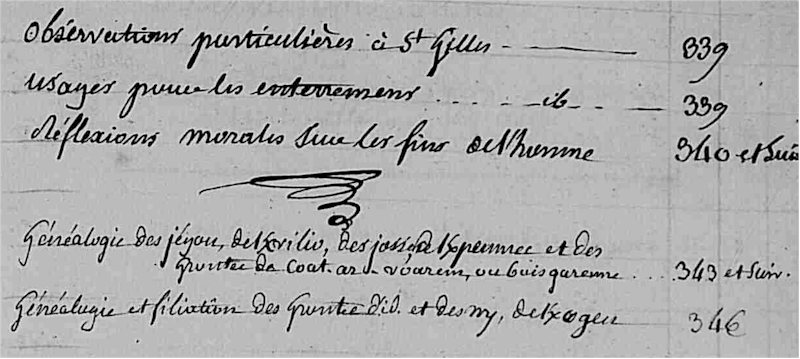 Observations particulières à St Gilles 339
usages pour les enterremens . . . . ib . . 339
Réflexions morales sur les fins de l'homme 340 et suiv
Généalogie des jégou, de des et des
de Coat ar voarem, ou bois garenne . . . 343 et suiv.
Généalogie et filiation des et des 346